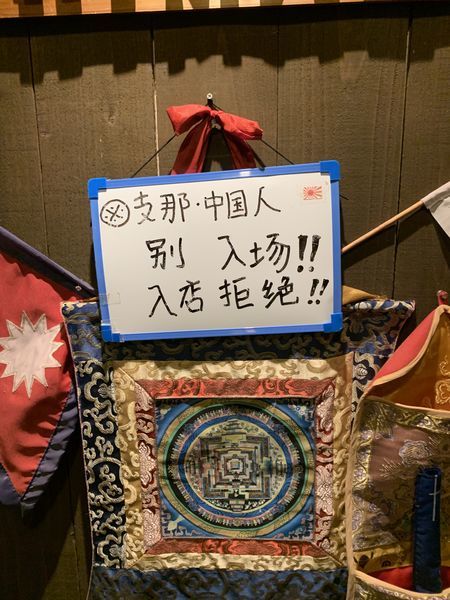 ※支那·中国人
别 入场!!
入店拒绝!!